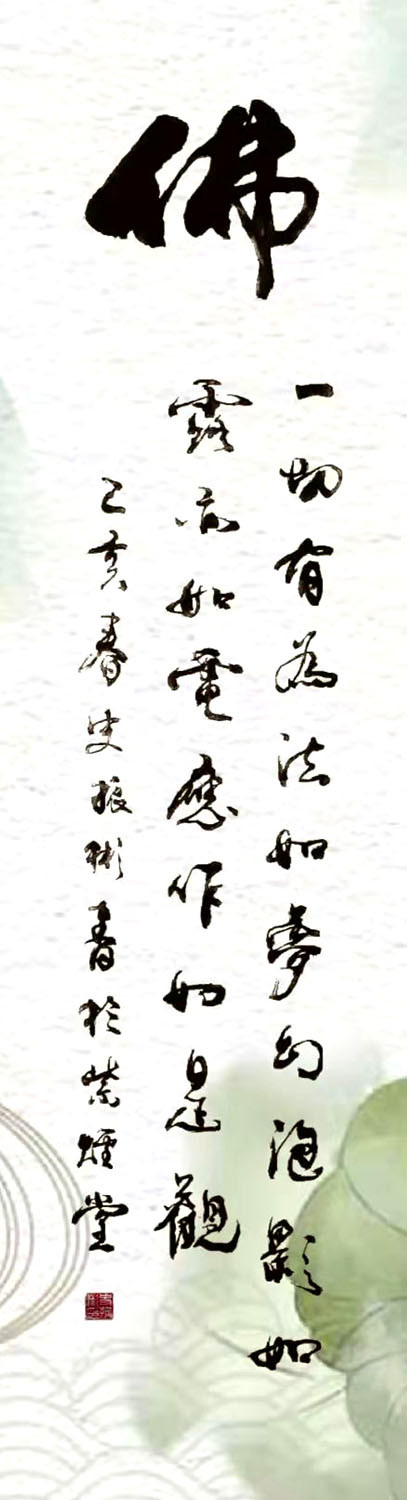 佛
一切有為法如夢幻泡影如
露亦如電應作如是觀
己亥春史振彬書於紫煙堂